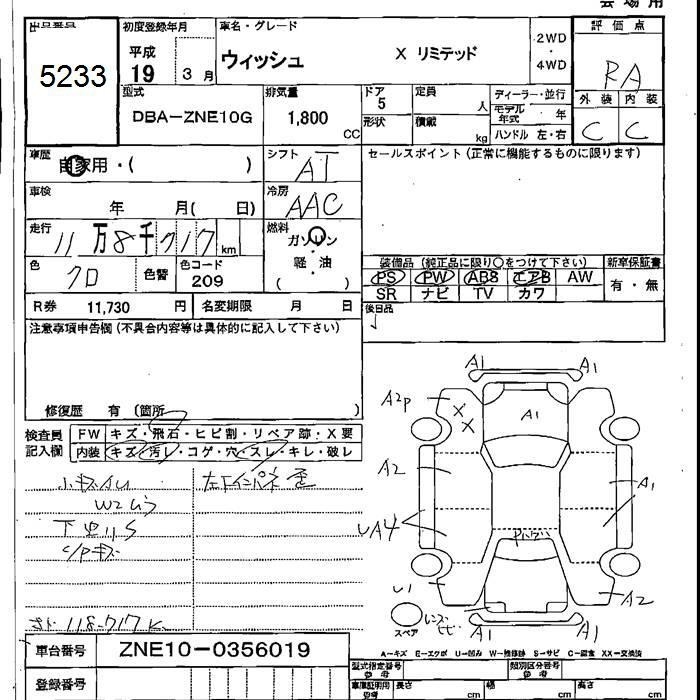 会場用
出品番号
初度登録年月
車名・グレード
評価点
5233
平成
19 3月
ウィッシュ X リミテッド
2WD
・
4WD
RA
型式
排気量
ドア
5
定員
人
ディーラー・並行
モデル年式 ・ 年
外装 内装
DBA-ZNE10G
1,800 CC
形状
積載
kg
ハンドル 左・右
C C
車歴
自家用・( )
シフト
AT
セールスポイント(正常に機能するものに限ります)
車検
年 月( 日)
冷房
AAC
走行
11万8千717km
燃料
ガソリン
・
軽油
( )
色
クロ
色替
色コード
209
装備品(純正品に限り○をつけて下さい)
新車保証書
PS PW ABS エアB AW
有・無
SR ナビ TV カワ
R券 11,730 円 名変期限 月 日
後日品
注意事項申告欄(不具合内容等は具体的に記入して下さい)
修復歴 有(箇所 )
検査員
記入欄
FW キズ・飛石・ヒビ割・リペア跡・X要
内装 キズ・汚レ・コゲ・穴・スレ・キレ・破レ
小キズAU
左F インパネ 歪
W2ムラ
下廻りS
118717K
A1 A1
A2P
XX
A1
A2
A1
UA4
U1
A2
スペア
A1 A1
A-キズ E-エクボ U-凹み W-補修跡 S-サビ C-腐食 XX-交換済
車台番号 ZNE10-0356019
登録番号
型式指定番号
参考
類別区分番号
参考
車庫証明用
参考
長さ cm 幅 cm 高さ cm